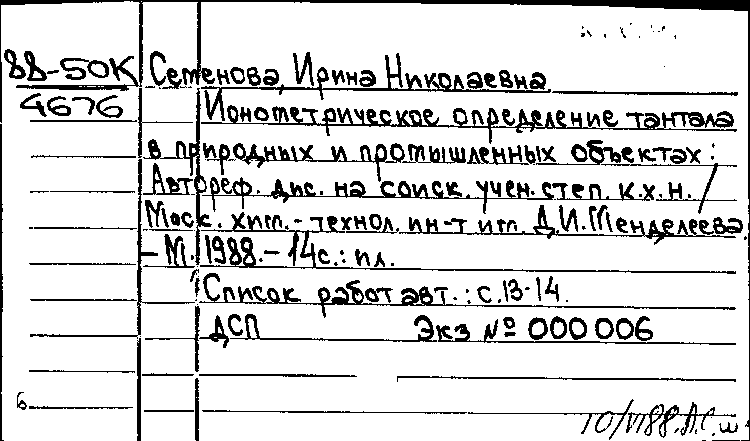 88-50К Семенова, Ирина Николаевна
4676 Ионометрическое определение тантала
в природных и промышленных объектах:
Автореф. дис. на соиск. учен. степ. к.х.н. /
Моск. хим.-технол. ин-т им. Д.И. Менделеева.
- М. 1988. - 14с.: ил.
Список работ авт.: с.13-14.
ДСП Экз № 000 006
6
10/VI88.